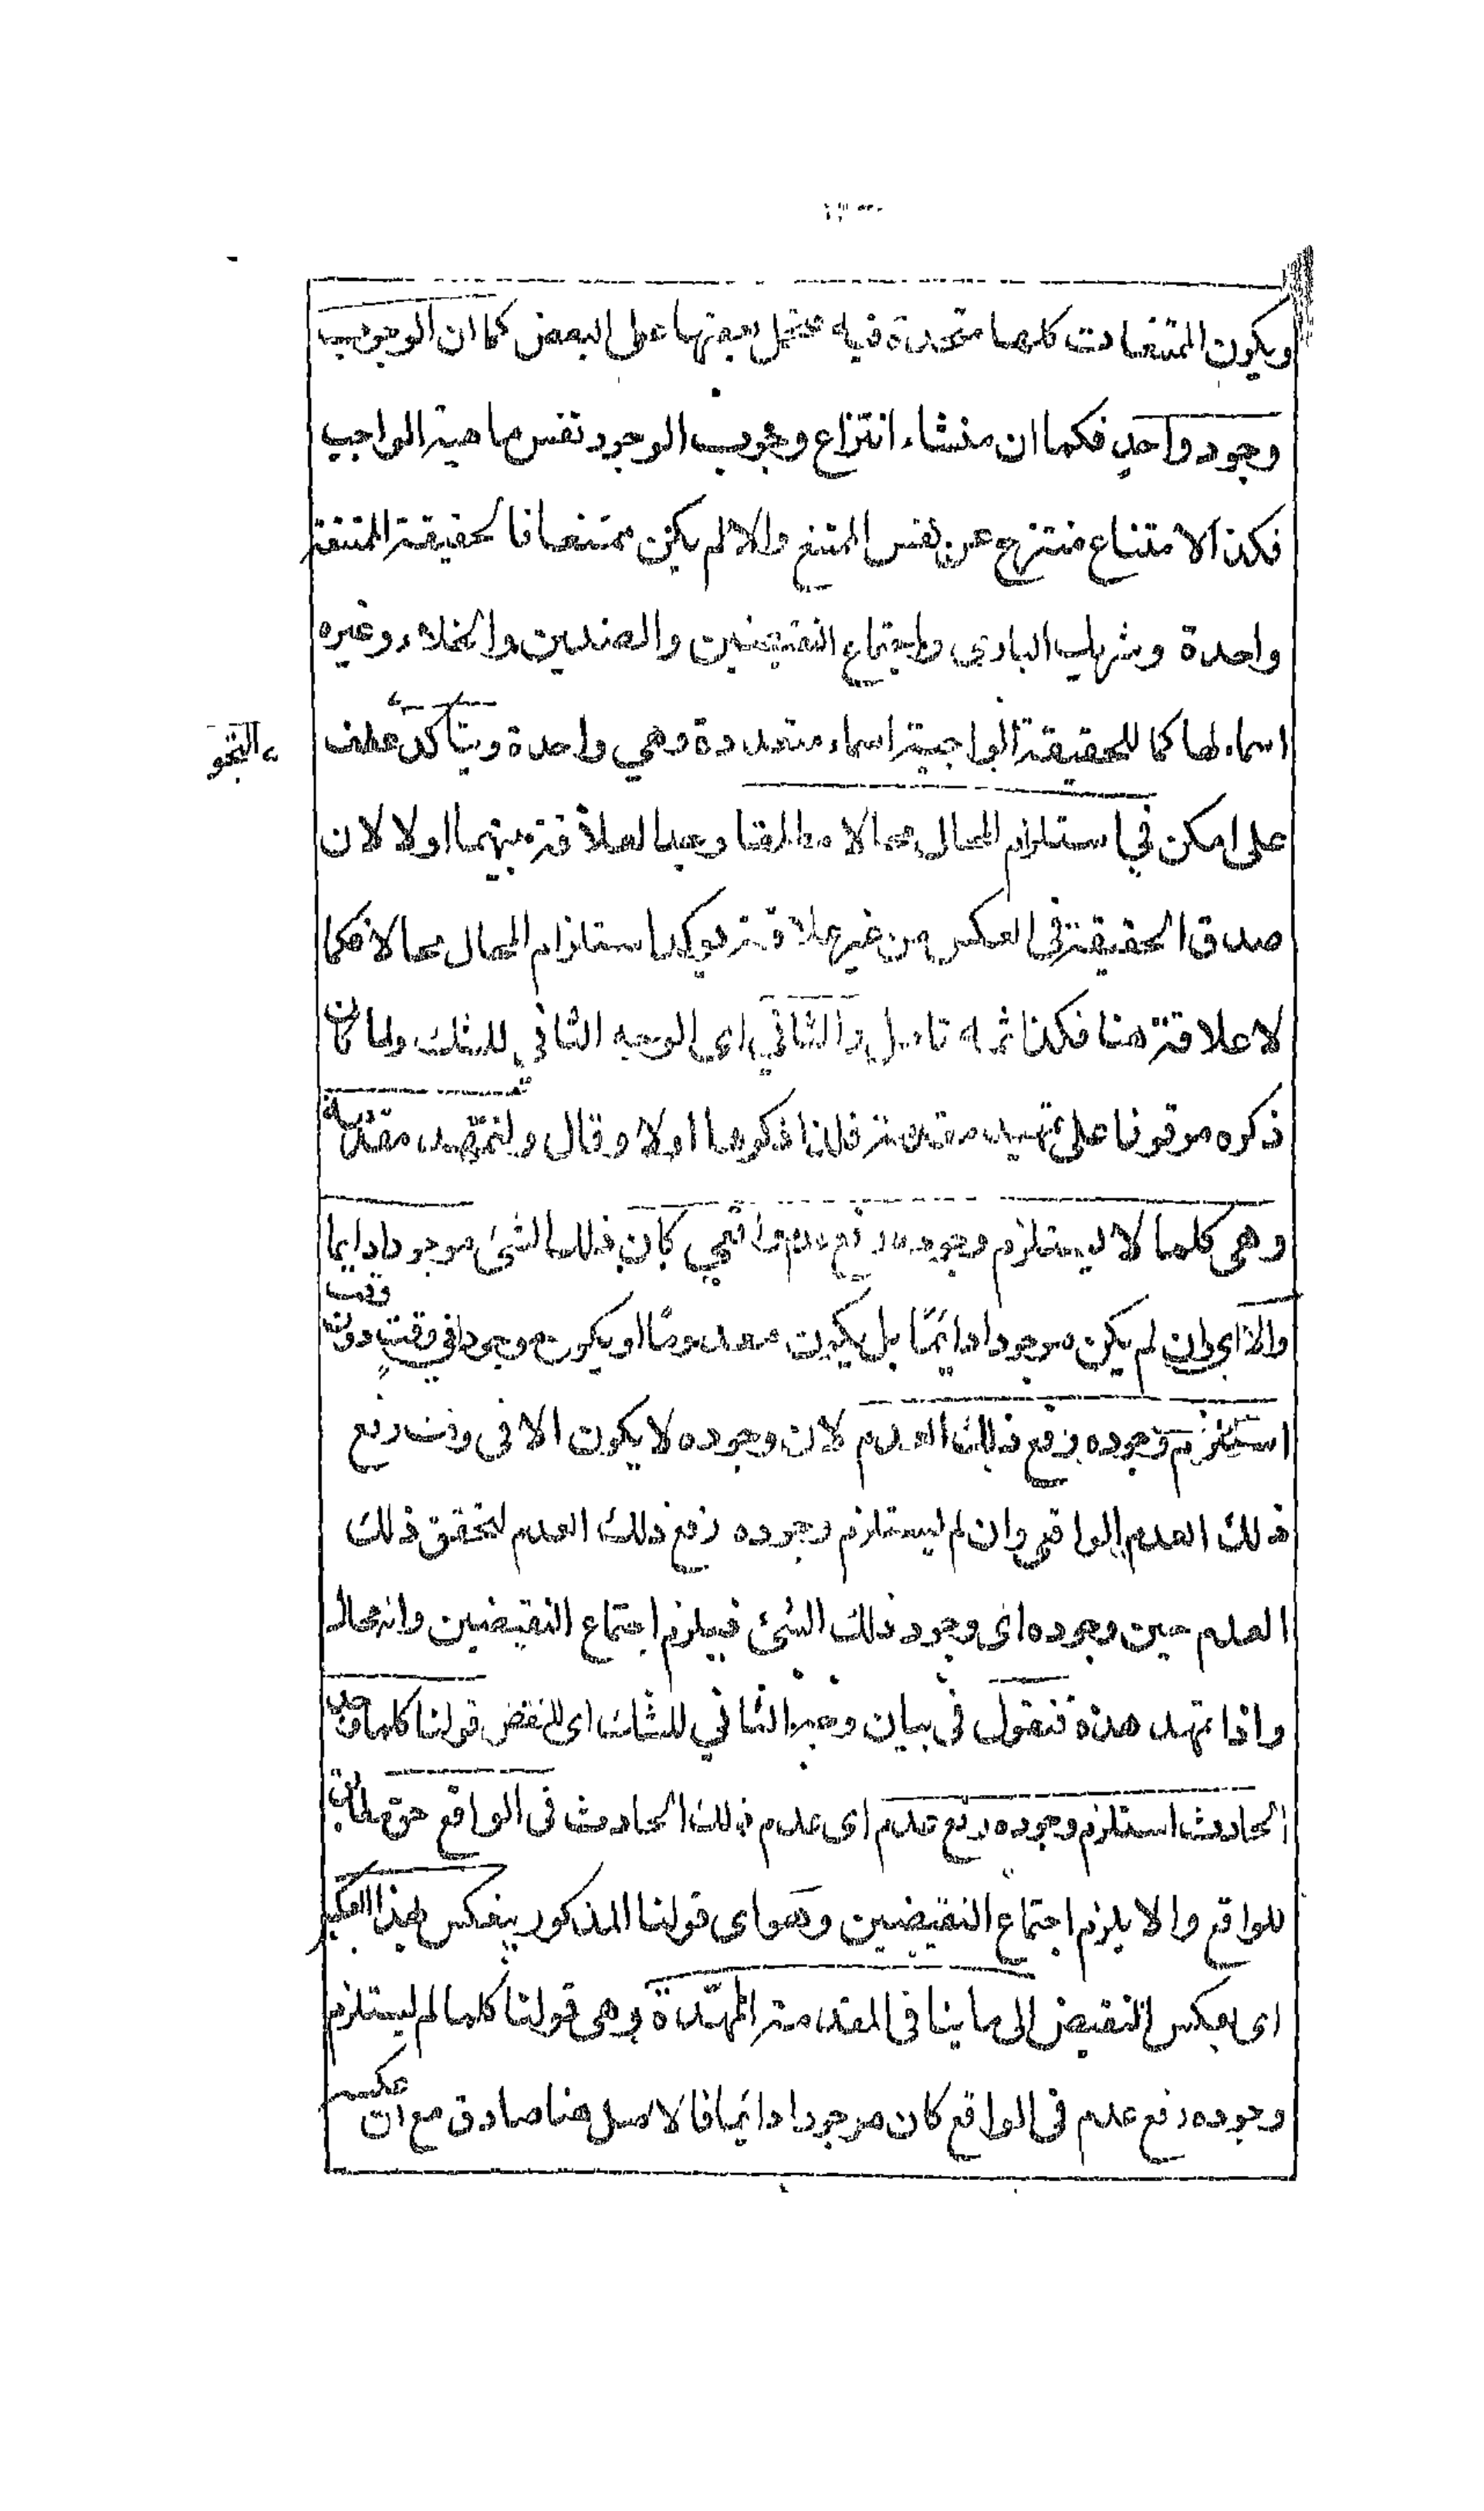 ويكون الممتنعات كلها متحدة فيه محتمل بعضها على البعض كما ان الوجوب
وجود واحد فكما ان منشاء انتزاع وجوب الوجود نفس ماهية الواجب
فكذا الامتناع منتزع عن نفس الممتنع والا لم يكن ممتنعا فالحقيقة الممتنعة
واحدة وشريك البارى واجتماع النقيضين والضدين والخلاء وغيره
اسماء لها كما للحقيقة الواجبية اسماء متعددة وهي واحدة ويتأكد عطف
على امكن في استلزام المحال محالا مطلقا وجد العلاقة بينهما اولا لان
صدق الحقيقة فى العكس من غير علاقة يوكد استلزام المحال محالا فكما
لا علاقة هنا فكذا ثمه تامل والثاني اى الوجه الثاني للشك ولما كان
ذكره موقوفا على تمهيد مقدمة فلذا ذكرها اولا وقال ولنمهد مقدمة
وهى كلما لا يستلزم وجوده رفع عدم واقعي كان ذلك الشئ موجودا دايما
والا اى وان لم يكن موجودا دائمًا بل يكون معدومًا او يكون موجودا في وقتٍ دون وقت
استلزم وجوده رفع ذلك العدم لان وجوده لا يكون الا فى وقت رفع
ذلك العدم الواقعى وان لم يستلزم وجوده رفع ذلك العدم لتحقق ذلك
العدم حين وجوده اى وجود ذلك الشئ فيلزم اجتماع النقيضين وانه محال
واذا تمهد هذه فنقول فى بيان وجه الثاني للشك اى للنقض قولنا كلما وجد
الحادث استلزم وجوده رفع عدم اى عدم ذلك الحادث فى الواقع حق مطابق
للواقع والا يلزم اجتماع النقيضين وهو اى قولنا المذكور ينعكس بهذا العكس
اى بعكس النقيض الى ما ينافى المقدمة الممهّدة وهى قولنا كلما لم يستلزم
وجوده رفع عدم فى الواقع كان موجودا دائما فالاصل هنا صادق مع ان عكسه